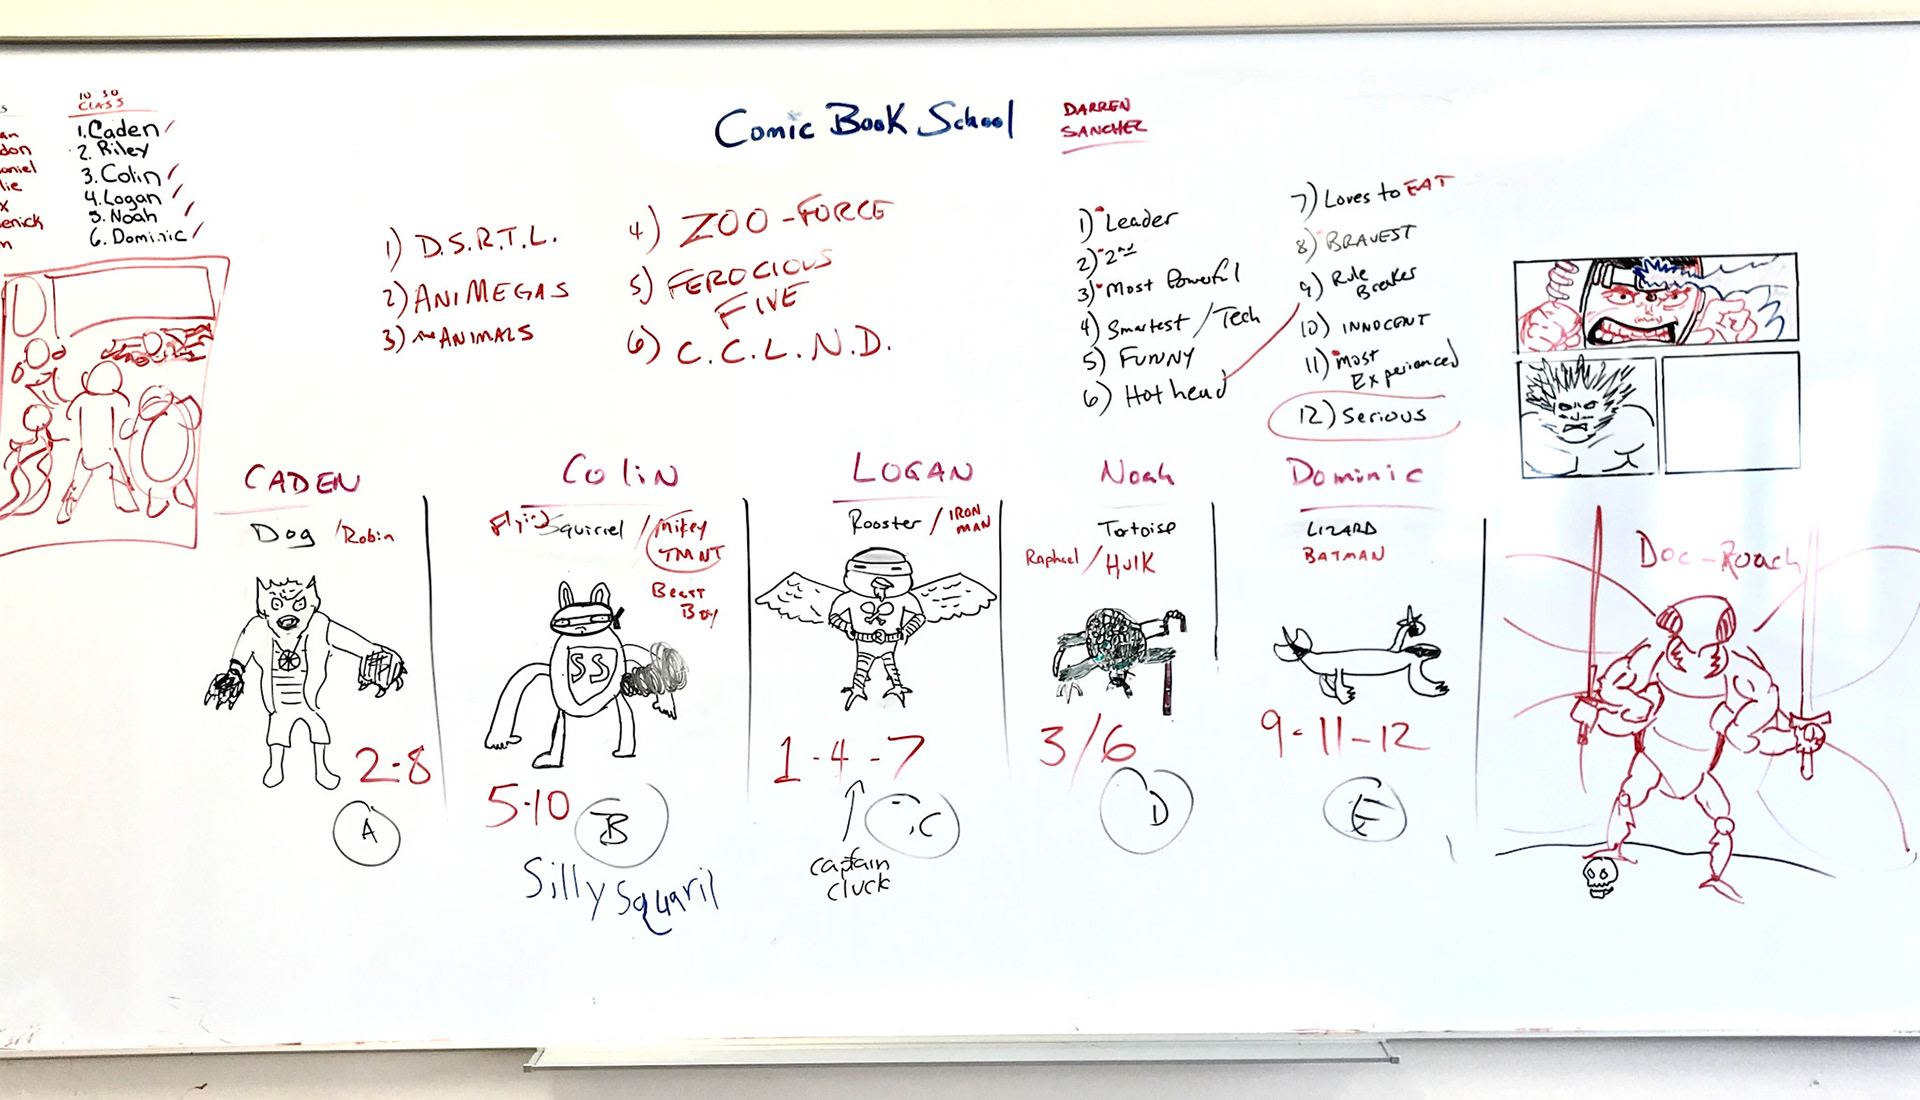 10 30
CLASS
1. Caden
2. Riley
3. Colin
4. Logan
5. Noah
6. Dominic
an
don
aniel
lie
x
erick
n
Comic Book School
DARREN
SANCHEZ
1) D.S.R.T.L.
2) ANIMEGAS
3) ANIMALS
4) ZOO-FORCE
5) FEROCIOUS
FIVE
6) C.C.L.N.D.
1) Leader
2) 2nd
3) Most Powerful
4) Smartest / Tech
5) FUNNY
6) Hot head
7) Loves to EAT
8) BRAVEST
9) Rule
Breaker
10) INNOCENT
11) most
Experianced
12) Serious
CADEN
Dog / Robin
2-8
A
Colin
Flying Squirrel / Mikey
TMNT
Beast
Boy
SS
5-10
B
Silly Squaril
LOGAN
Rooster / IRON
MAN
1-4-7
C
captain
cluck
Noah
Tortoise
Raphael / HULK
3/6
D
Dominic
LIZARD
BATMAN
9-11-12
E
Doc-Roach